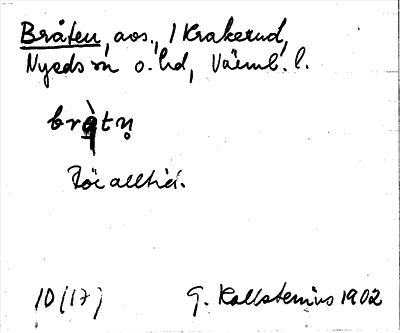 Bråten, aos., / Krakerud,
Nyeds sn o. hd, Värml. l.
bråtn̥
För alltid.
10 (17) G. Kallstenius 1902